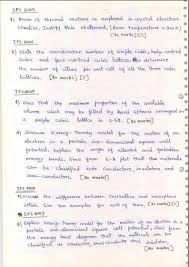 IFS 2005
1) Beam of thermal neutrons is employed in crystal structure
studies. Justify this statement. [Room temperature = 300K]
[20 marks] [1]
IFS 2006
1) State the coordination number of simple cubic, body-centred
cubic and face-centred cubic lattices. Determine
the number of atoms per unit cell of all the three cubic
lattices. [20 marks] [1]
IFS 2007
1) Show that the maximum proportion of the available
volume which may be filled by hard spheres arranged in
a simple cubic is 0.52. [10 marks]
2) Discuss Kronig-Penney model for the motion of an
electron in a periodic one dimensional square well
potential. Explain the origin of allowed and forbidden
energy bands. Show from E-k plot that the materials
can be classified into conductors, Semiconductors
and insulators. [30 marks] [1]
IFS 2008
1) Discuss the difference between crystalline and amorphous
solids. Give one example for each of them. [10 marks] [1]
IFS 2009
1) Explain Kronig-Penney model for the motion of an electron in a
periodic one-dimensional square well potential. Show from
the energy band diagram that the materials can be
classified as conductor, semiconductor and insulator.